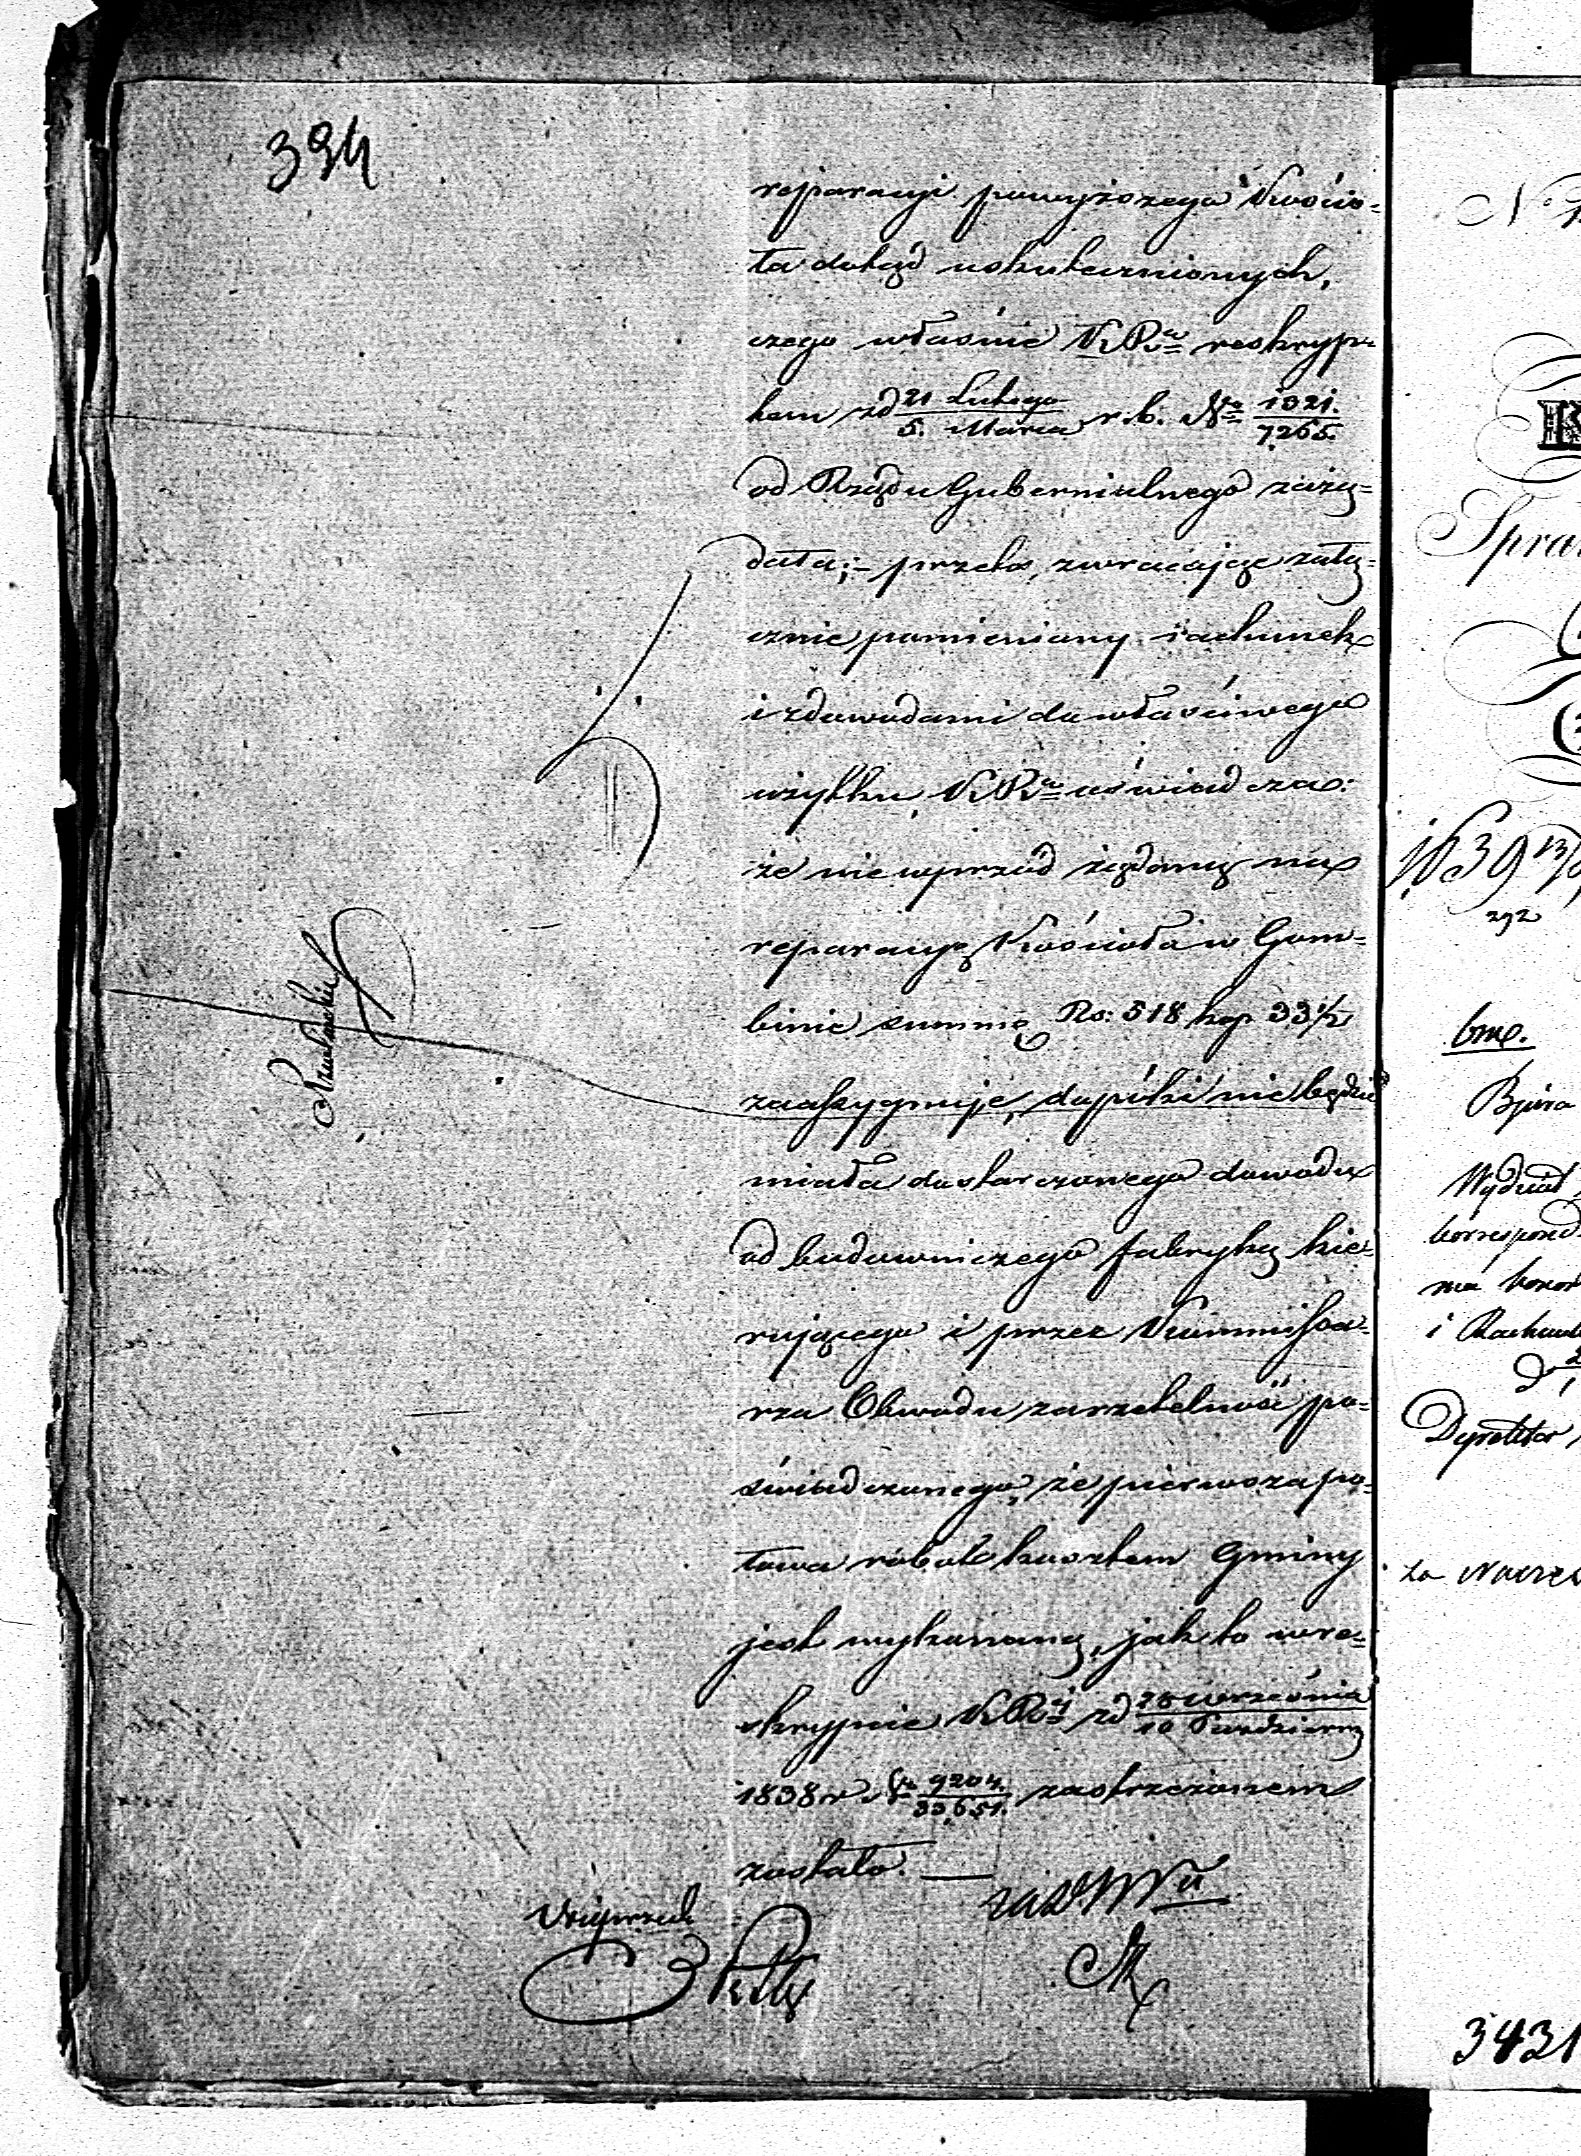 394
reparacyi powyższego Kościo-
ła dotąd uskutecznionych,
czego właśnie K. R. reskryp-
tem zd 21 Lutego / 5. Marca r. b. No 1321. / 7265.
od Rządu Gubernialnego zażą-
dała; – przeto, zwracając załą-
cznie pomieniony rachunek
i z dowodami do właściwego
użytku, K. R. uświadcza:
że nie wprzód żądaną na
reparacyą Kościoła w Gom-
binie summę Rs: 518 kop 33 1/2
zaassygnuje, dopóki nie będzie
miała dostarczonego dowodu
od budowniczego fabryką kie-
rującego i przez Kommissa-
rza Obwodu za rzetelność po-
świadczonego, że pierwsza po-
łowa robót kosztem Gminy
jest wykonaną, jak to w re-
skrypcie K. R. zd 28 Września / 10 Październ
1838 r. No 9204. / 33,651. zastrzeżonem
zostało. —
N
Spra
1639
292
Bióra
Wydział
korrespond
i Rachun
Dyrektor
za Nacze
3431